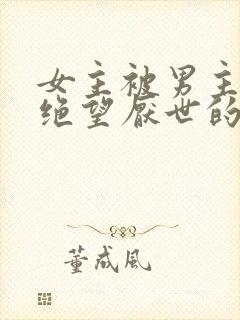 女主被男主
绝望厌世的
董成风